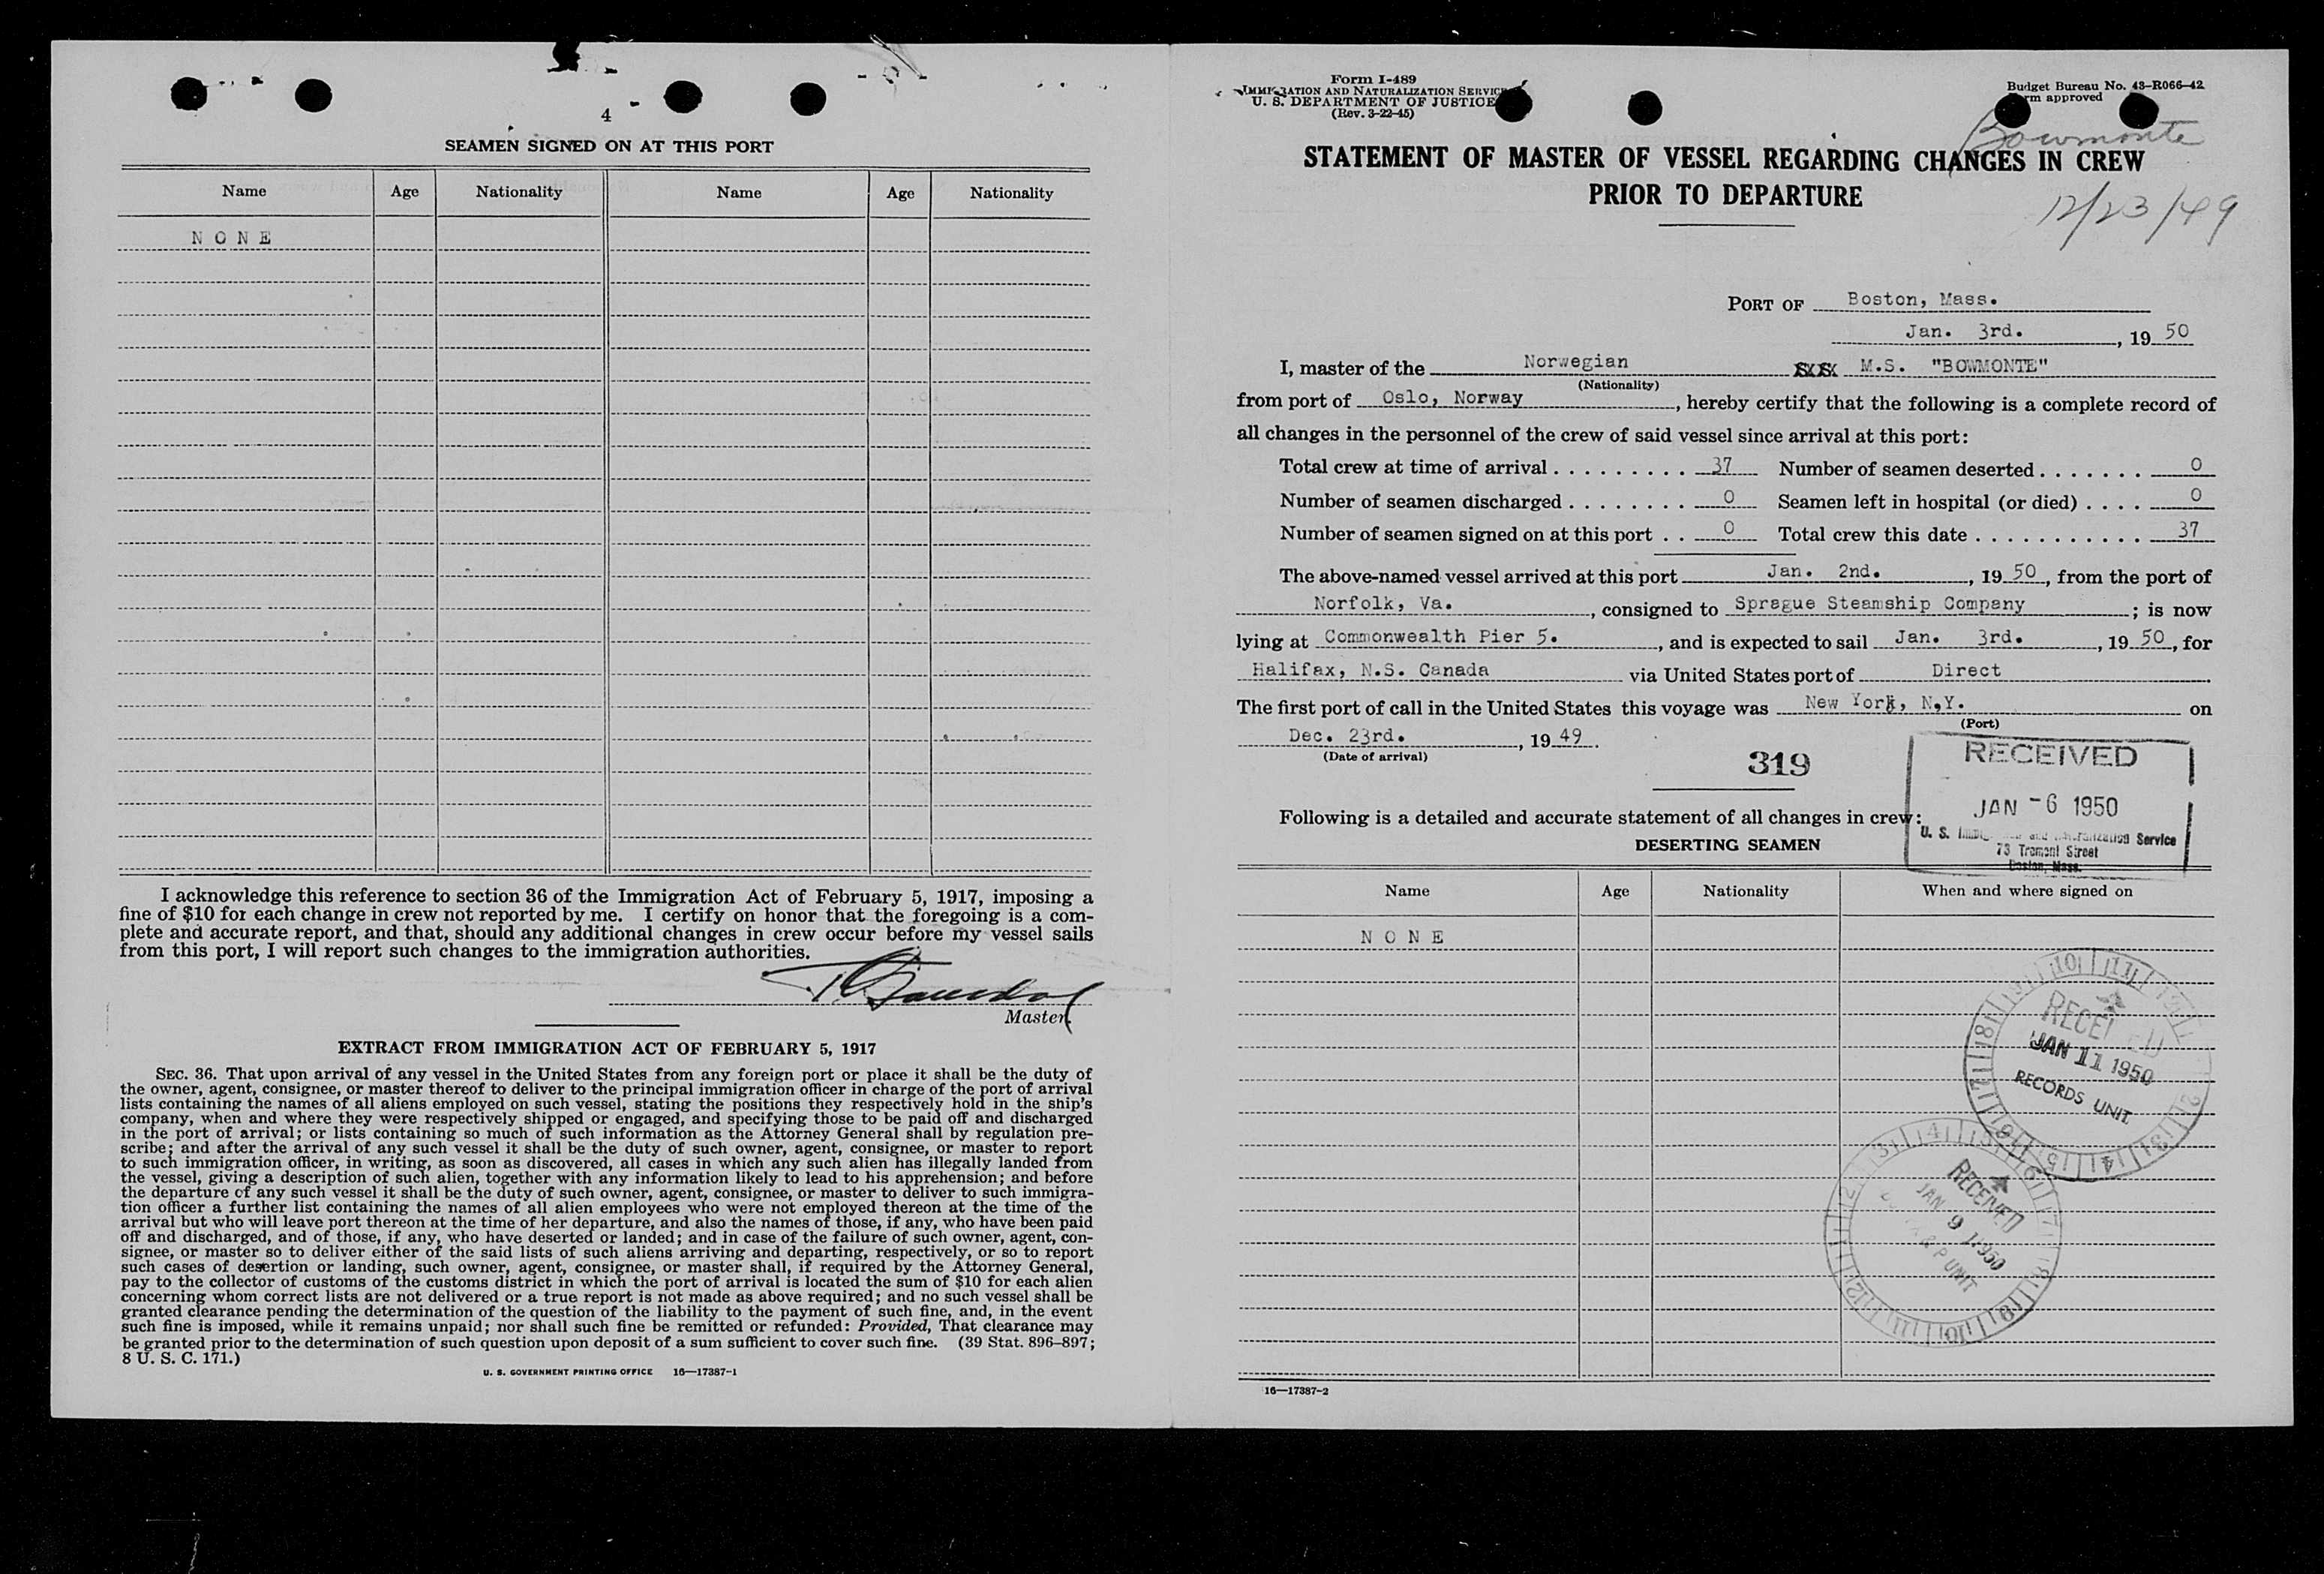 4
SEAMEN SIGNED ON AT THIS PORT
Name Age Nationality Name Age Nationality
NONE
I acknowledge this reference to section 36 of the Immigration Act of February 5, 1917, imposing a
fine of $10 for each change in crew not reported by me. I certify on honor that the foregoing is a com-
plete and accurate report, and that, should any additional changes in crew occur before my vessel sails
from this port, I will report such changes to the immigration authorities.
Master.
EXTRACT FROM IMMIGRATION ACT OF FEBRUARY 5, 1917
SEC. 36. That upon arrival of any vessel in the United States from any foreign port or place it shall be the duty of
the owner, agent, consignee, or master thereof to deliver to the principal immigration officer in charge of the port of arrival
lists containing the names of all aliens employed on such vessel, stating the positions they respectively hold in the ship's
company, when and where they were respectively shipped or engaged, and specifying those to be paid off and discharged
in the port of arrival; or lists containing so much of such information as the Attorney General shall by regulation pre-
scribe; and after the arrival of any such vessel it shall be the duty of such owner, agent, consignee, or master to report
to such immigration officer, in writing, as soon as discovered, all cases in which any such alien has illegally landed from
the vessel, giving a description of such alien, together with any information likely to lead to his apprehension; and before
the departure of any such vessel it shall be the duty of such owner, agent, consignee, or master to deliver to such immigra-
tion officer a further list containing the names of all alien employees who were not employed thereon at the time of the
arrival but who will leave port thereon at the time of her departure, and also the names of those, if any, who have been paid
off and discharged, and of those, if any, who have deserted or landed; and in case of the failure of such owner, agent, con-
signee, or master so to deliver either of the said lists of such aliens arriving and departing, respectively, or so to report
such cases of desertion or landing, such owner, agent, consignee, or master shall, if required by the Attorney General,
pay to the collector of customs of the customs district in which the port of arrival is located the sum of $10 for each alien
concerning whom correct lists are not delivered or a true report is not made as above required; and no such vessel shall be
granted clearance pending the determination of the question of the liability to the payment of such fine, and, in the event
such fine is imposed, while it remains unpaid; nor shall such fine be remitted or refunded: Provided, That clearance may
be granted prior to the determination of such question upon deposit of a sum sufficient to cover such fine. (39 Stat. 896–897;
8 U. S. C. 171.)
U. S. GOVERNMENT PRINTING OFFICE 16—17387-1
Form I-489
IMMIGRATION AND NATURALIZATION SERVICE
U. S. DEPARTMENT OF JUSTICE
(Rev. 3-22-45)
Budget Bureau No. 43-R066-42
Form approved
Bowmonte
STATEMENT OF MASTER OF VESSEL REGARDING CHANGES IN CREW
PRIOR TO DEPARTURE
12/23/49
PORT OF Boston, Mass.
Jan. 3rd., 19 50
I, master of the Norwegian M.S. "BOWMONTE"
(Nationality)
from port of Oslo, Norway, hereby certify that the following is a complete record of
all changes in the personnel of the crew of said vessel since arrival at this port:
Total crew at time of arrival 37 Number of seamen deserted 0
Number of seamen discharged 0 Seamen left in hospital (or died) 0
Number of seamen signed on at this port 0 Total crew this date 37
The above-named vessel arrived at this port Jan. 2nd., 19 50, from the port of
Norfolk, Va., consigned to Sprague Steamship Company; is now
lying at Commonwealth Pier 5., and is expected to sail Jan. 3rd., 19 50, for
Halifax, N.S. Canada via United States port of Direct.
The first port of call in the United States this voyage was New York, N.Y. on
(Port)
Dec. 23rd., 19 49.
(Date of arrival)
319
RECEIVED
JAN -6 1950
U. S. Immigration and Naturalization Service
73 Tremont Street
Boston, Mass.
Following is a detailed and accurate statement of all changes in crew:
DESERTING SEAMEN
Name Age Nationality When and where signed on
NONE
RECEIVED
JAN 11 1950
RECORDS UNIT
RECEIVED
JAN 9 1950
& P UNIT
16—17387-2